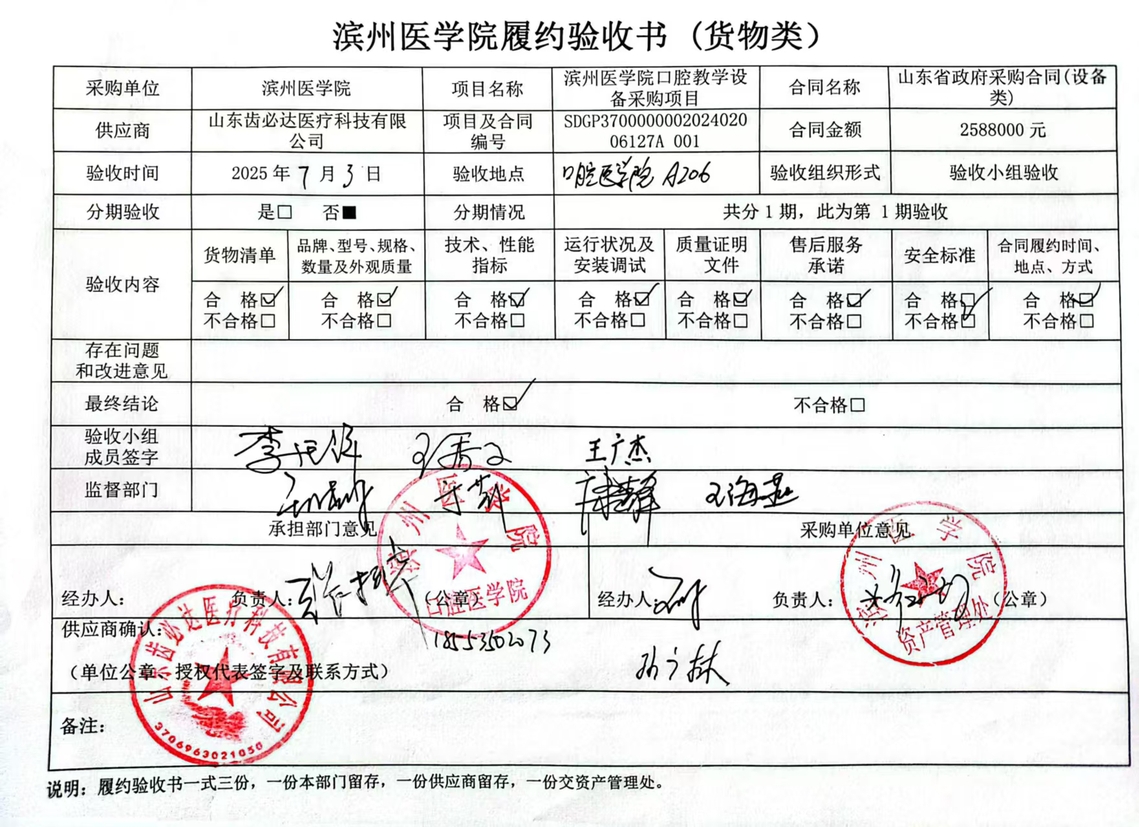 滨州医学院履约验收书 (货物类)
采购单位 滨州医学院 项目名称 滨州医学院口腔教学设备采购项目 合同名称 山东省政府采购合同(设备类)
供应商 山东齿必达医疗科技有限公司 项目及合同编号 SDGP370000000202402006127A 001 合同金额 2588000 元
验收时间 2025 年 7 月 3 日 验收地点 口腔医学院 A206 验收组织形式 验收小组验收
分期验收 是□ 否■ 分期情况 共分 1 期，此为第 1 期验收
验收内容 货物清单 品牌、型号、规格、数量及外观质量 技术、性能指标 运行状况及安装调试 质量证明文件 售后服务承诺 安全标准 合同履约时间、地点、方式
合 格☑ 合 格☑ 合 格☑ 合 格☑ 合 格☑ 合 格☑ 合 格☑ 合 格☑
不合格□ 不合格□ 不合格□ 不合格□ 不合格□ 不合格□ 不合格□ 不合格□
存在问题和改进意见
最终结论 合 格☑ 不合格□
验收小组成员签字 王广杰
监督部门 王海燕
承担部门意见 采购单位意见
滨州医学院
口腔医学院
滨州医学院
资产管理处
经办人： 负责人： （公章） 经办人 负责人： （公章）
供应商确认：
18553502073
（单位公章、授权代表签字及联系方式）
山东齿必达医疗科技有限公司
3706963021050
备注：
说明：履约验收书一式三份，一份本部门留存，一份供应商留存，一份交资产管理处。